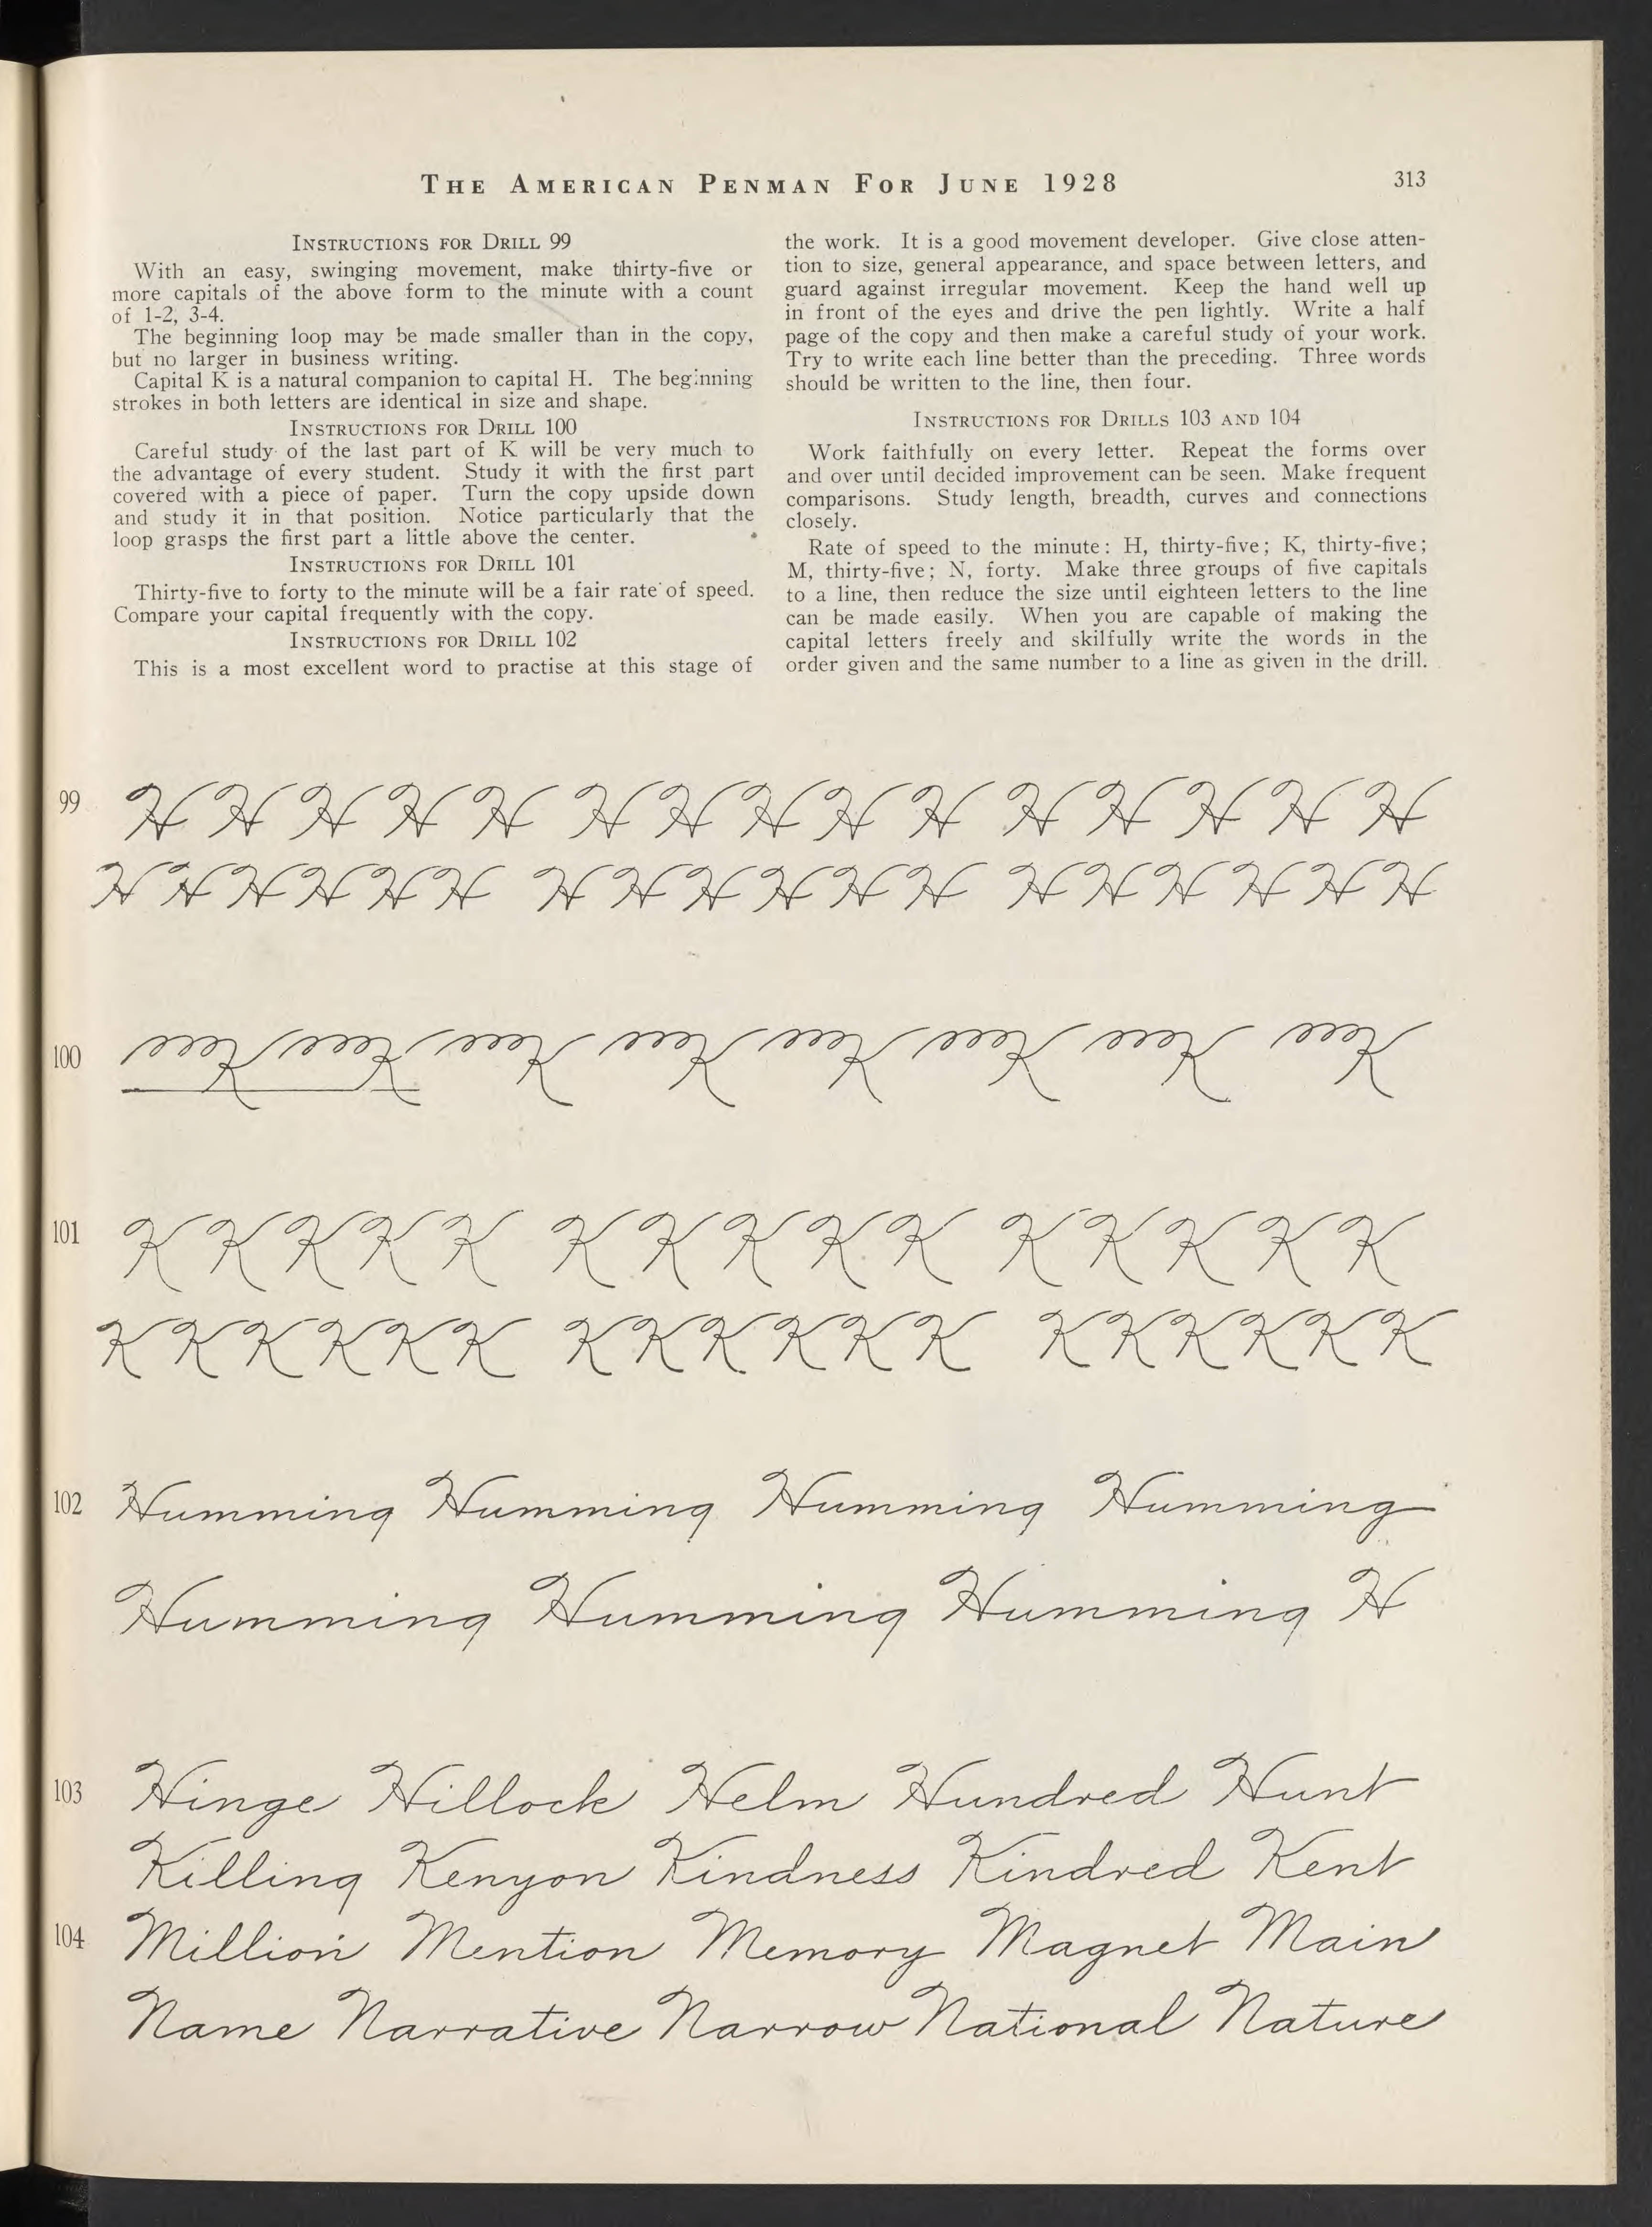 THE AMERICAN PENMAN FOR JUNE 1928
313
INSTRUCTIONS FOR DRILL 99
With an easy, swinging movement, make thirty-five or
more capitals of the above form to the minute with a count
of 1-2, 3-4.
The beginning loop may be made smaller than in the copy,
but no larger in business writing.
Capital K is a natural companion to capital H. The beginning
strokes in both letters are identical in size and shape.
INSTRUCTIONS FOR DRILL 100
Careful study of the last part of K will be very much to
the advantage of every student. Study it with the first part
covered with a piece of paper. Turn the copy upside down
and study it in that position. Notice particularly that the
loop grasps the first part a little above the center.
INSTRUCTIONS FOR DRILL 101
Thirty-five to forty to the minute will be a fair rate of speed.
Compare your capital frequently with the copy.
INSTRUCTIONS FOR DRILL 102
This is a most excellent word to practise at this stage of
the work. It is a good movement developer. Give close atten-
tion to size, general appearance, and space between letters, and
guard against irregular movement. Keep the hand well up
in front of the eyes and drive the pen lightly. Write a half
page of the copy and then make a careful study of your work.
Try to write each line better than the preceding. Three words
should be written to the line, then four.
INSTRUCTIONS FOR DRILLS 103 AND 104
Work faithfully on every letter. Repeat the forms over
and over until decided improvement can be seen. Make frequent
comparisons. Study length, breadth, curves and connections
closely.
Rate of speed to the minute: H, thirty-five; K, thirty-five;
M, thirty-five; N, forty. Make three groups of five capitals
to a line, then reduce the size until eighteen letters to the line
can be made easily. When you are capable of making the
capital letters freely and skilfully write the words in the
order given and the same number to a line as given in the drill.
99 H H H H H H H H H H H H H H H
H H H H H H H H H H H H H H H H H H
100 K K K K K K K K
101 K K K K K K K K K K K K K K K
K K K K K K K K K K K K K K K K K K
102 Humming Humming Humming Humming
Humming Humming Humming H
103 Hinge Hillock Helm Hundred Hunt
Killing Kenyon Kindness Kindred Kent
104 Million Mention Memory Magnet Main
Name Narrative Narrow National Nature